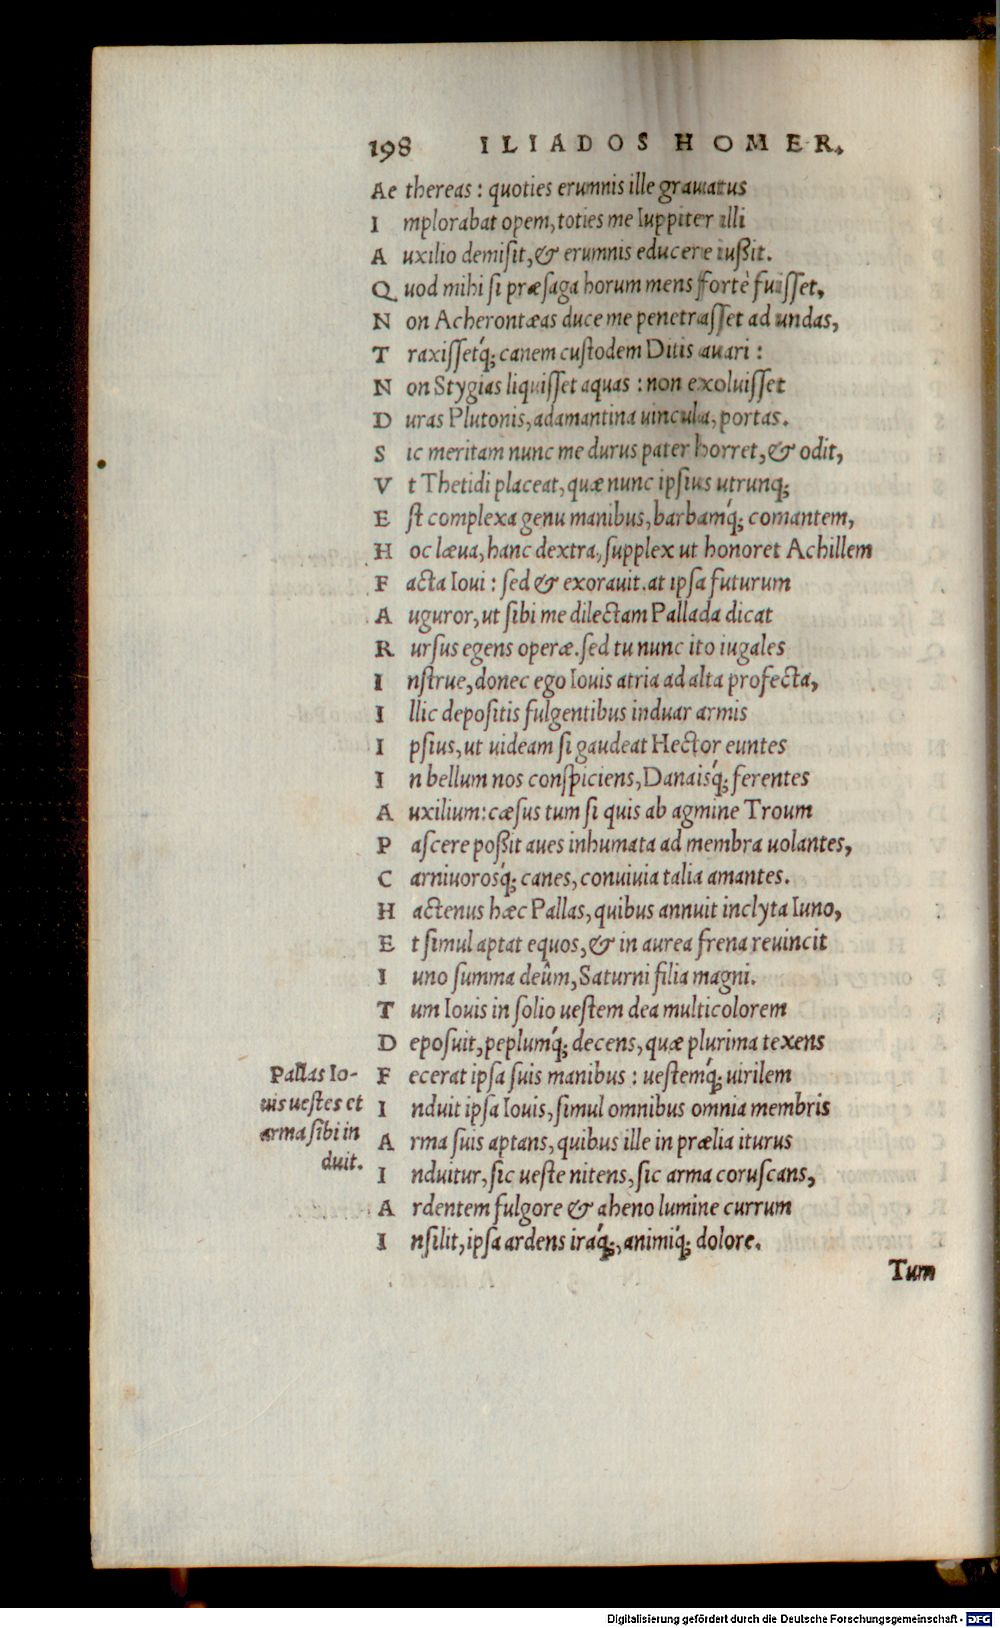 198 ILIADOS HOMER.
Ae thereas : quoties erumnis ille grauatus
I mplorabat opem, toties me Iuppiter illi
A uxilio demiſit, & erumnis educere iußit.
Q uod mihi ſi præſaga horum mens fortè fuiſſet,
N on Acherontæas duce me penetraſſet ad undas,
T raxiſſetq́; canem cuſtodem Ditis auari :
N on Stygias liquiſſet aquas : non exoluiſſet
D uras Plutonis, adamantina uincula, portas.
S ic meritam nunc me durus pater horret, & odit,
V t Thetidi placeat, quæ nunc ipſius utrunq;
E ſt complexa genu manibus, barbamq́; comantem,
H oc læua, hanc dextra, ſupplex ut honoret Achillem
F acta Ioui : ſed & exorauit. at ipſa futurum
A uguror, ut ſibi me dilectam Pallada dicat
R urſus egens operæ. ſed tu nunc ito iugales
I nſtrue, donec ego Iouis atria ad alta profecta,
I llic depoſitis fulgentibus induar armis
I pſius, ut uideam ſi gaudeat Hector euntes
I n bellum nos conſpiciens, Danaisq́; ferentes
A uxilium: cæſus tum ſi quis ab agmine Troum
P aſcere poßit aues inhumata ad membra uolantes,
C arniuorosq́; canes, conuiuia talia amantes.
H actenus hæc Pallas, quibus annuit inclyta Iuno,
E t ſimul aptat equos, & in aurea frena reuincit
I uno ſumma deûm, Saturni filia magni.
T um Iouis in ſolio ueſtem dea multicolorem
D epoſuit, peplumq́; decens, quæ plurima texens
F ecerat ipſa ſuis manibus : ueſtemq́; uirilem
I nduit ipſa Iouis, ſimul omnibus omnia membris
A rma ſuis aptans, quibus ille in prælia iturus
I nduitur, ſic ueſte nitens, ſic arma coruſcans,
A rdentem fulgore & aheno lumine currum
I nſilit, ipſa ardens iraq́;, animiq́; dolore.
Pallas Io-
uis ueſtes et
arma ſibi in
duit.
Tum
Digitalisierung gefördert durch die Deutsche Forschungsgemeinschaft - DFG